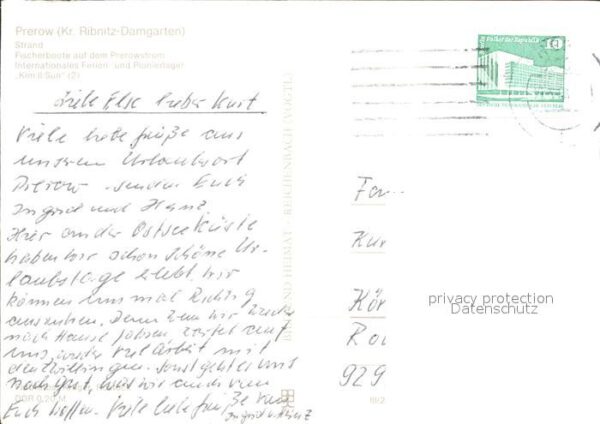 Prerow (Kr. Ribnitz-Damgarten)
Strand
Fischerboote auf dem Prerowstrom
Internationales Ferien- und Pionierlager
„Kim Il Sun" (2)
Liebe Else lieber Kurt
Viele liebe Grüße aus
unserem Urlaubsort
Prerow senden Euch
Ingrid und Heinz
Hier an der Ostsee Küste
haben wir schon schöne Ur-
laubstage erlebt, wir
können uns mal Richtig
ausruhen. Denn wenn wir wieder
nach Hause fahren auf
uns wieder viel Arbeit mit
den Zwillingen. Sonst geht es uns
noch gut, was wir auch von
Euch hoffen. Viele liebe Grüße von
Ingrid u. Heinz
DDR 0,20 M
BILD UND HEIMAT REICHENBACH (VOGTL)
Palast der Republik
10
Fam
Kur
Kör
929
privacy protection
Datenschutz